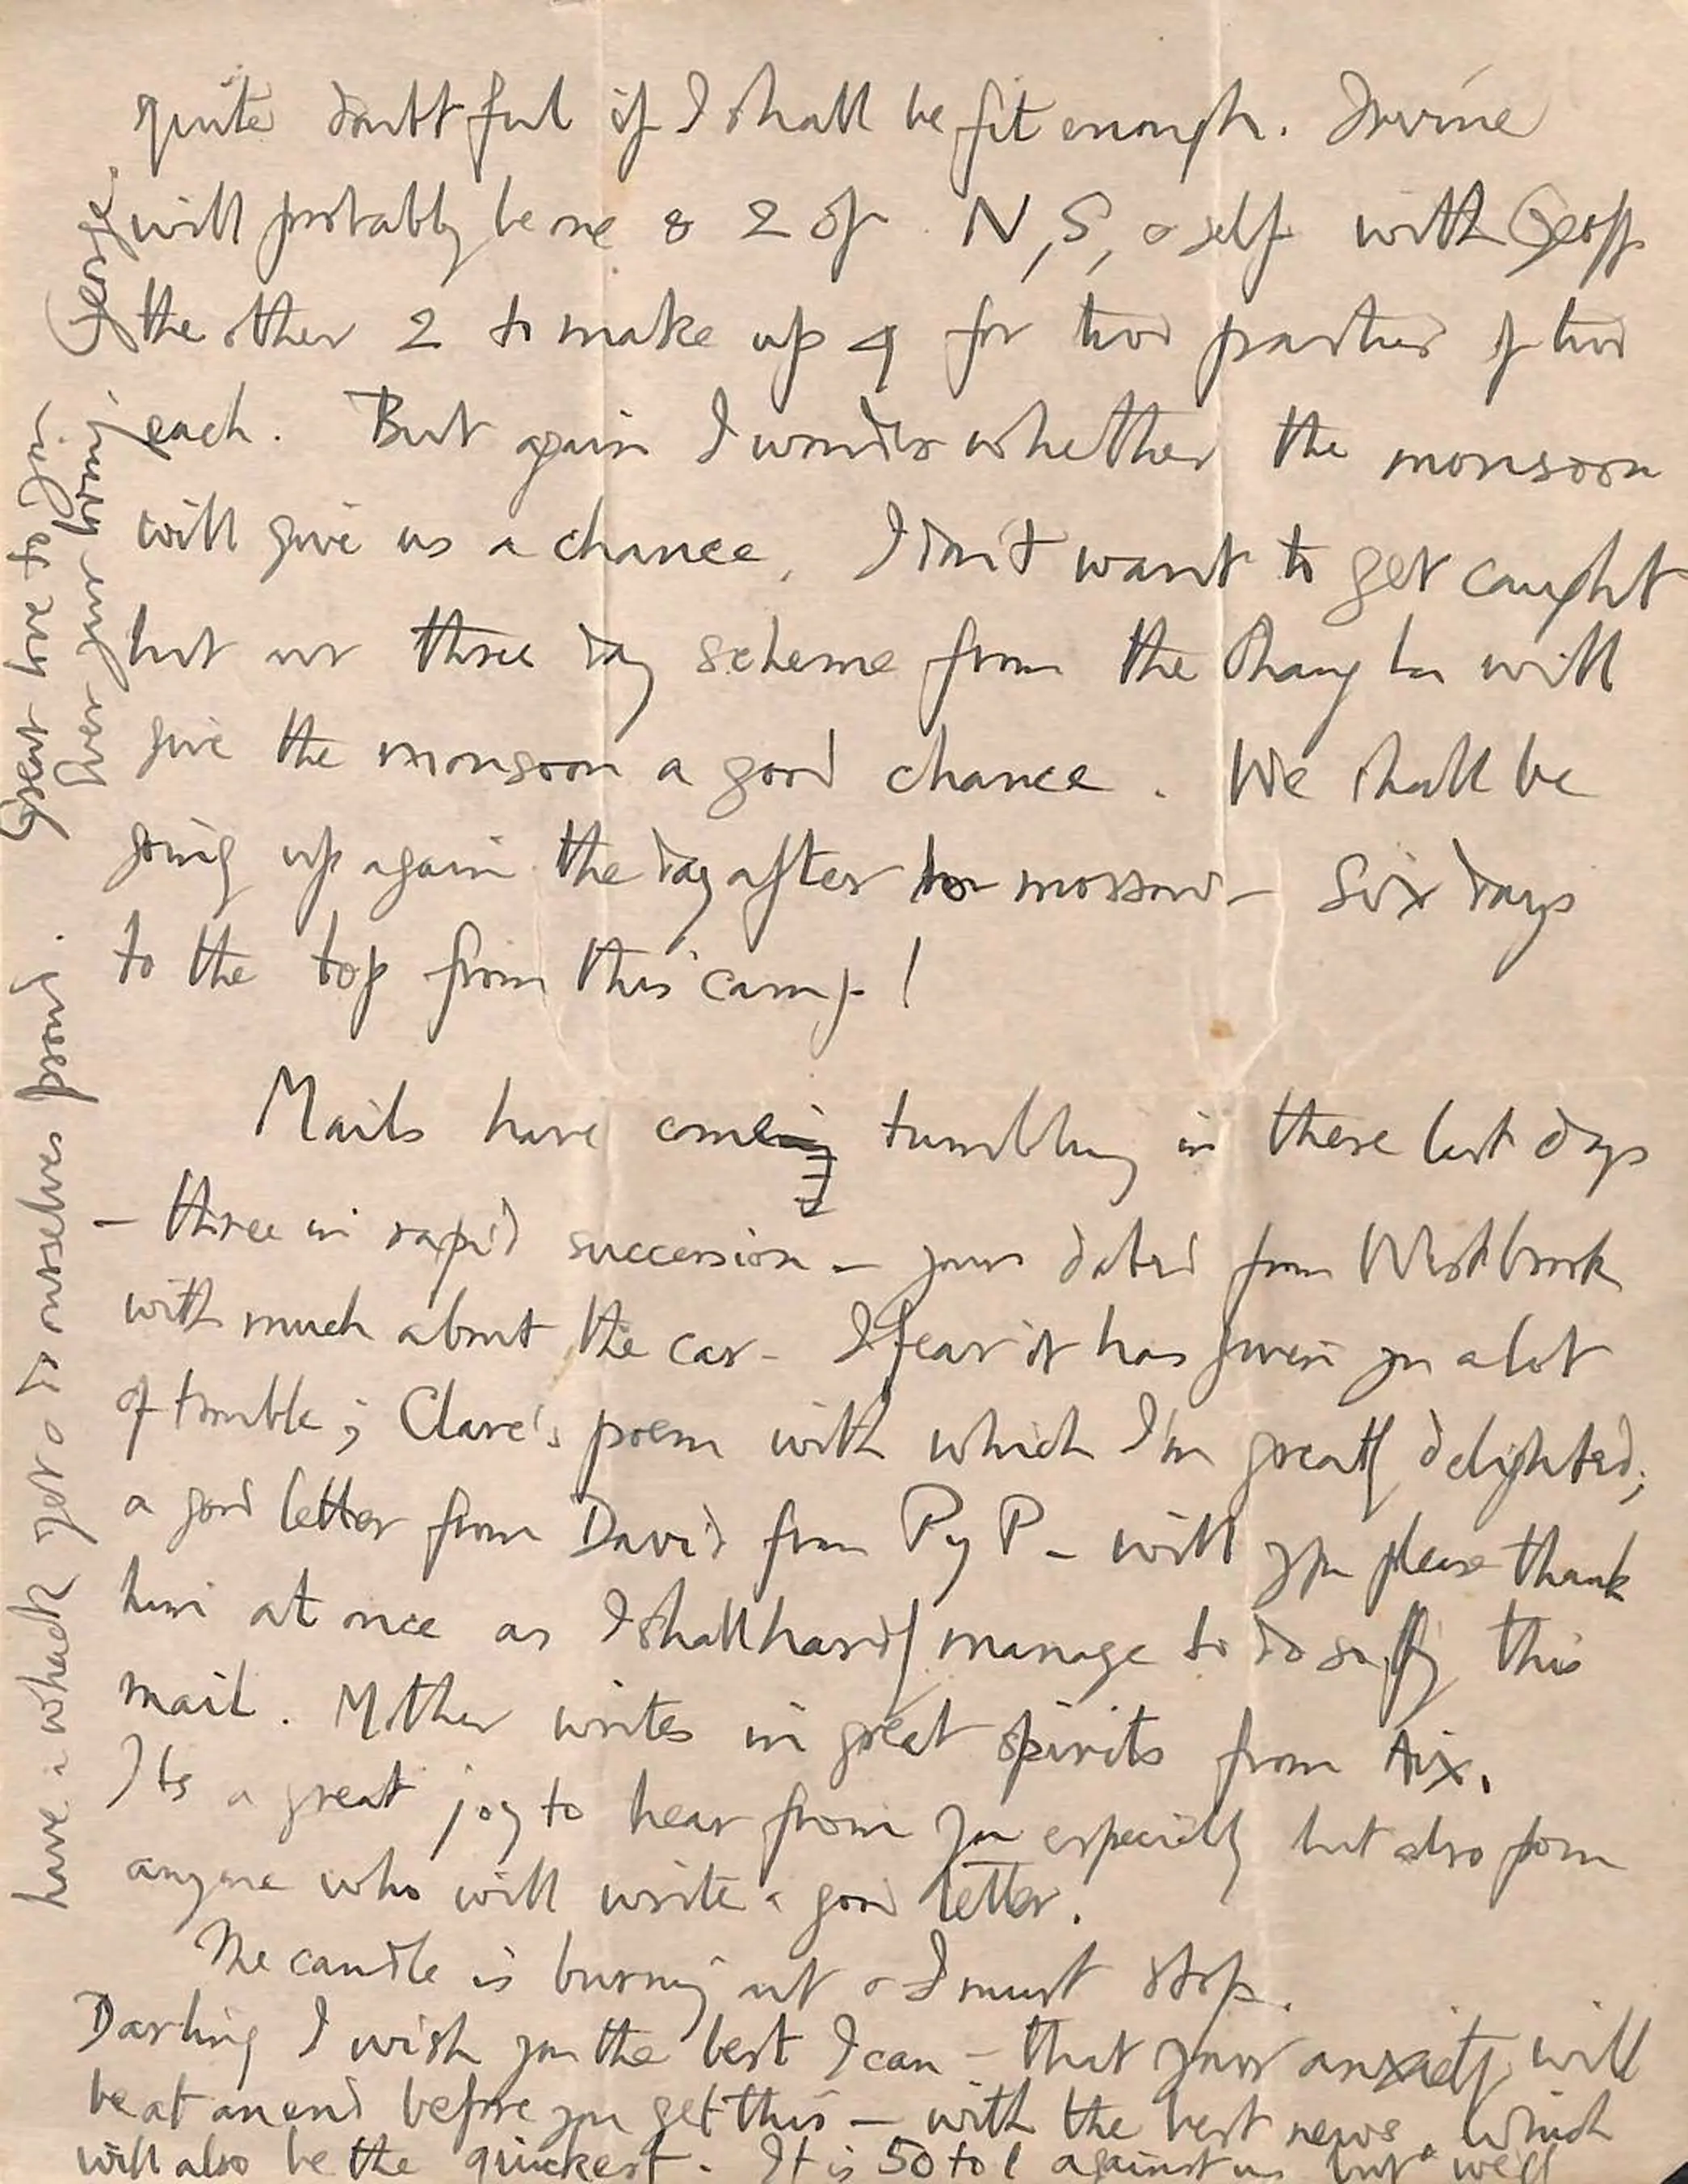 quite doubtful if I shall be fit enough. Irvine
will probably be one & 2 of N, S, & self with Geoff
the other 2 to make up 4 for two parties of two
each. But again I wonder whether the monsoon
will give us a chance. I don't want to get caught
but our three day scheme from the Chang La will
give the monsoon a good chance. We shall be
going up again the day after tomorrow – Six days
to the top from this camp!
Mails have come tumbling in these last days
– three in rapid succession – yours dated from Westbrook
with much about the car – I fear it has given you a lot
of trouble; Clare's poem with which I'm greatly delighted;
a good letter from David from PyP – will you please thank
him at once as I shall hardly manage to do so by this
mail. Mother writes in great spirits from Aix.
Its a great joy to hear from you especially but also from
anyone who will write a good letter.
The candle is burning out & I must stop.
Darling I wish you the best I can – that your anxiety will
be at an end before you get this – with the best news. Which
will also be the quickest. It is 50 to 1 against us but we'll
have a whack yet & do ourselves proud.
Great love to you.
Ever your loving,
George.